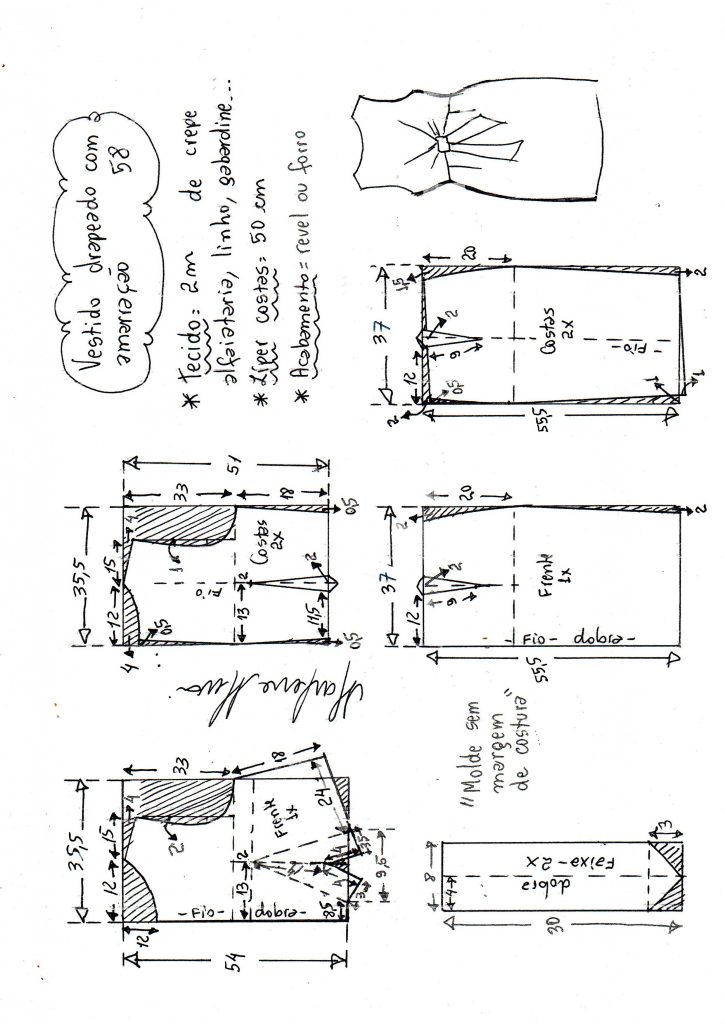 Vestido drapeado com a
amarração 58
* Tecido = 2m de crepe
alfaiataria, linho, gabardine...
* Zíper costas = 50 cm
* Acabamento = revel ou forro
35,5
12
15
4
12
33
2
54
-Fio- dobra-
13
2
Frente
1x
18
24
8,5
3
4
3,5
9,5
Marlene Mukai
35,5
12
15
4
4
0,5
33
1
51
Fio
13
2
Costas
2x
18
11,5
2
0,5
0,5
"Molde sem
margem
de costura"
8
4
dobra
Faixa-2X
30
3
37
12
2
20
9
2
Frente
1x
-Fio- dobra-
55,5
2
37
12
2
0,5
1,5
20
9
2
Costas
2x
-Fio-
55,5
1
1
2